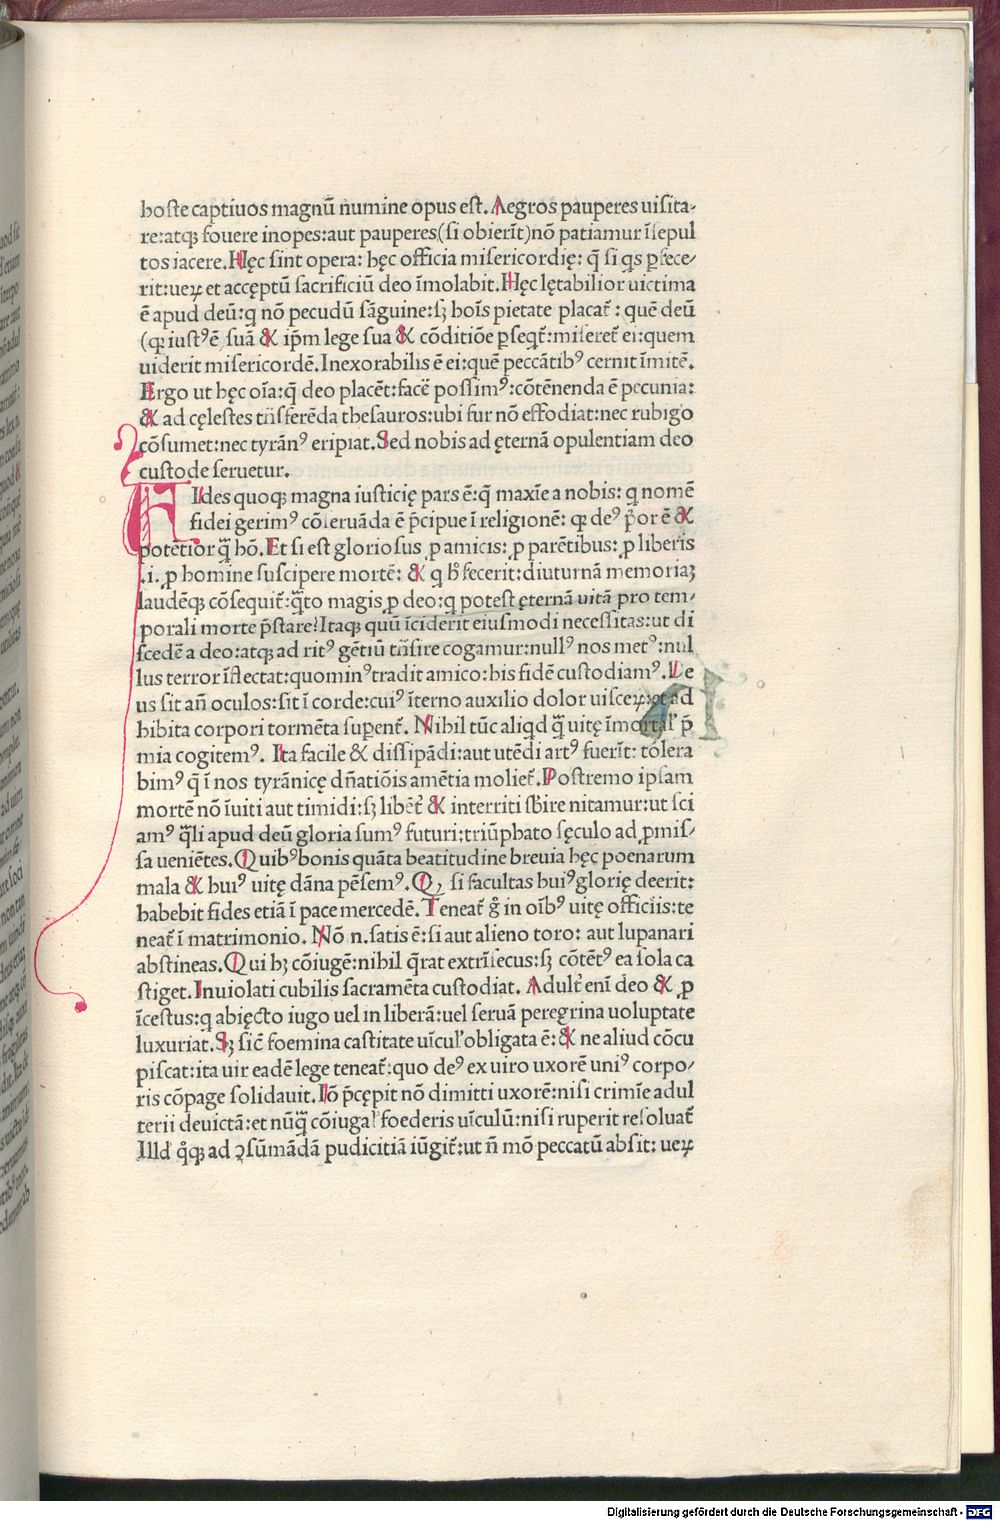 hoste captiuos magnū numine opus est. Aegros pauperes uisita-
re:atqꝫ fouere inopes:aut pauperes(si obierīt)nō patiamur īsepul
tos iacere. Hęc sint opera: hęc officia misericordię: q̄ si qs ꝑfece/
rit:ueꝝ et accęptū sacrificiū deo īmolabit. Hęc lętabilior uictima
ē apud deū:q nō pecudū sāguine:sꝫ hoīs pietate placat᷑: quē deū
(qꝛ iustꝰē suā & ip̄m lege sua & cōditiōe ꝑseqt᷑:miseret᷑ ei:quem
uiderit misericordē. Inexorabilis ē ei:quē peccātibꝰ cernit īmitē.
Ergo ut hęc oīa:q̄ deo placēt:facē possimꝰ:cōtēnenda ē pecunia:
& ad cęlestes trīsferēda thesauros:ubi fur nō effodiat:nec rubigo
cōsumet:nec tyrānꝰ eripiat. Sed nobis ad ęternā opulentiam deo
custode seruetur.
FIdes quoqꝫ magna iusticię pars ē:q̄ maxīe a nobis: q nomē
fidei gerimꝰ cōseruāda ē p̄cipue ī religionē: qꝛ deꝰ p̄or ē &
potētior q̄ hō. Et si est gloriosus ꝓ amicis: ꝓ parētibus: ꝓ liberis
.i. ꝓ homine suscipere mortē: & q h̄ fecerit:diuturnā memoriaꝫ
laudēqꝫ cōsequit᷑:q̄to magis ꝓ deo:q potest ęternā uitā pro tem/
porali morte p̄stare?Itaqꝫ quū īciderit eiusmodi necessitas:ut di
scedē a deo:atqꝫ ad ritꝰ gētiū trīsire cogamur:nullꝰ nos metꝰ:nul
lus terror īflectat:quominꝰtradit amico: his fidē custodiamꝰ. De
us sit añ oculos:sit ī corde:cuiꝰ īterno auxilio dolor uisceꝝ:et ad
hibita corpori tormēta supent᷑. Nihil tūc aliqd q̄ uitę īmortal' p̄
mia cogitemꝰ. Ita facile & dissipādi:aut utēdi artꝰ fuerīt: tolera
bimꝰ q̄ ī nos tyrānicę dn̄atiōis amētia moliet᷑. Postremo ipsam
mortē nō īuiti aut timidi:sꝫ libēt᷑ & interriti sb̄ire nitamur:ut sci
amꝰ q̄li apud deū gloria sumꝰ futuri:triūphato sęculo ad ꝓmis/
sa ueniētes. Quibꝰbonis quāta beatitudine breuia hęc poenarum
mala & huiꝰ uitę dāna pēsemꝰ. Qꝫ si facultas huiꝰglorię deerit:
habebit fides etiā ī pace mercedē. Teneat᷑ g̊ in oībꝰ uitę officiis:te
neat᷑ ī matrimonio. Nō n. satis ē:si aut alieno toro: aut lupanari
abstineas. Qui hꝫ cōiugē:nihil q̄rat extrīsecus:sꝫ cōtētꝰ ea sola ca
stiget. Inuiolati cubilis sacramēta custodiat. Adult᷑ enī deo & ꝓ
īcestus:q abięcto iugo uel in liberā:uel seruā peregrina uoluptate
luxuriat. Sꝫ sic̄ foemina castitate uīcul' obligata ē: & ne aliud cōcu
piscat:ita uir eadē lege teneat᷑:quo deꝰ ex uiro uxorē uniꝰ corpo/
ris cōpage solidauit. Iō p̄cępit nō dimitti uxorē:nisi crimīe adul
terii deuictā:et nūq̄ cōiugal' foederis uīculū:nisi ruperit resoluat᷑
Illd' q̊qꝫ ad ꝯsūmādā pudicitiā iūgit᷑:ut n̄ mō peccatū absit: ueꝝ
Digitalisierung gefördert durch die Deutsche Forschungsgemeinschaft - DFG